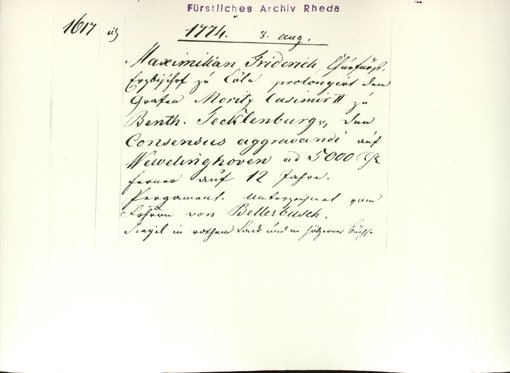 Fürstliches Archiv Rheda
1617
1774. 8. aug.
Maximilian Friderich Churfürst,
Erzbischof zu Cöln prolongirt dem
Grafen Moritz Casimir II zu
Benth. Tecklenburg, den
Consensus aggravandi auf
Wevelinghoven ad 5000
ferner auf 12 Jahre.
Pergament. Unterzeichnet vom
von Belderbusch.
Siegel in rothem Lack und in hölzerner Büchse